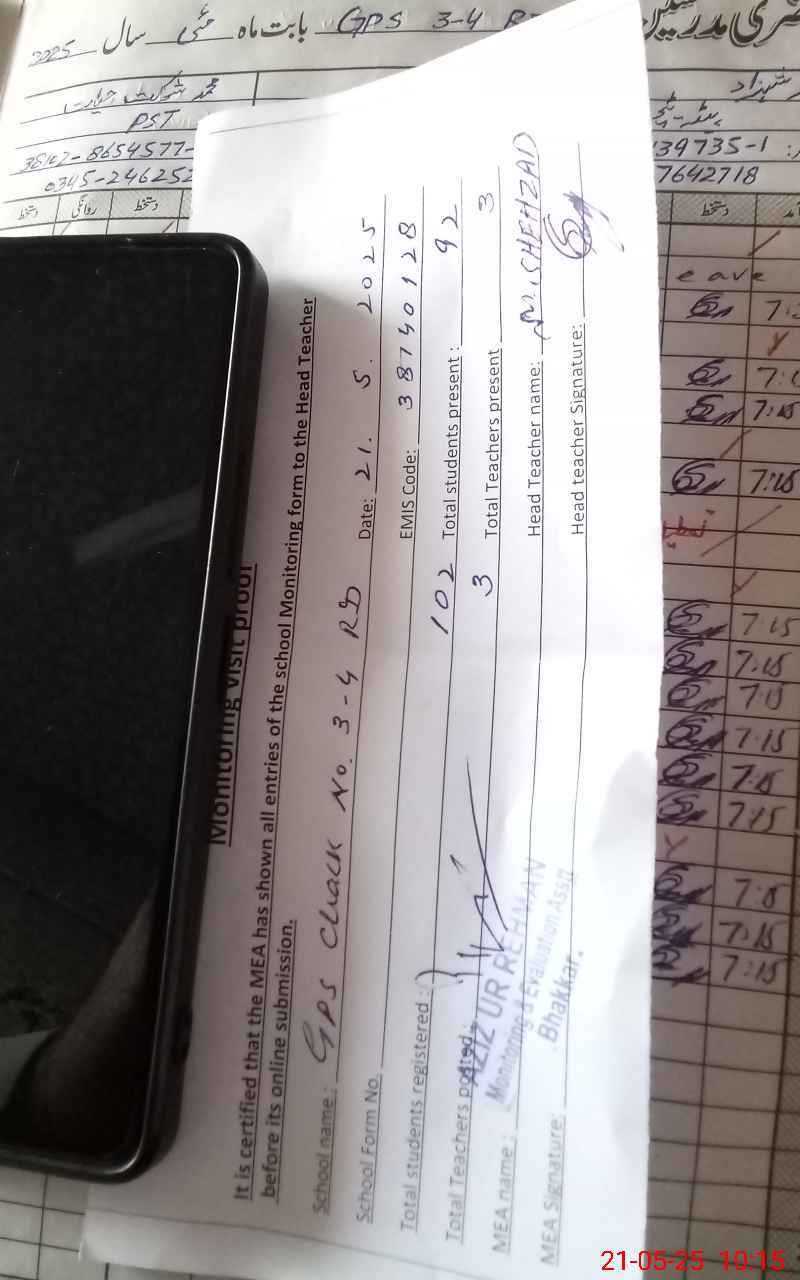 GPS 3-4 RD بابت ماہ مئی سال 2025
محمد شوکت حیات
شہزاد
PST
38102-8654577-
39735-1
0345-246252
7642718
دستخط روانگی دستخط
دستخط
Monitoring visit proof
It is certified that the MEA has shown all entries of the school Monitoring form to the Head Teacher
before its online submission.
School name: GPS Chack No. 3-4 RD
School Form No. Date: 21. 5. 2025
EMIS Code: 38740128
Total students registered: 102 Total students present: 92
Total Teachers posted: 3 Total Teachers present 3
MEA name: Head Teacher name: M. SHEHZAD
MEA Signature: Head teacher Signature:
AZIZ UR REHMAN
Monitoring & Evaluation Asstt
Bhakkar.
eave
7:15
7:15
7:15
7:15
7:15
7:15
7:15
7:15
7:15
7:15
21-05-25 10:15